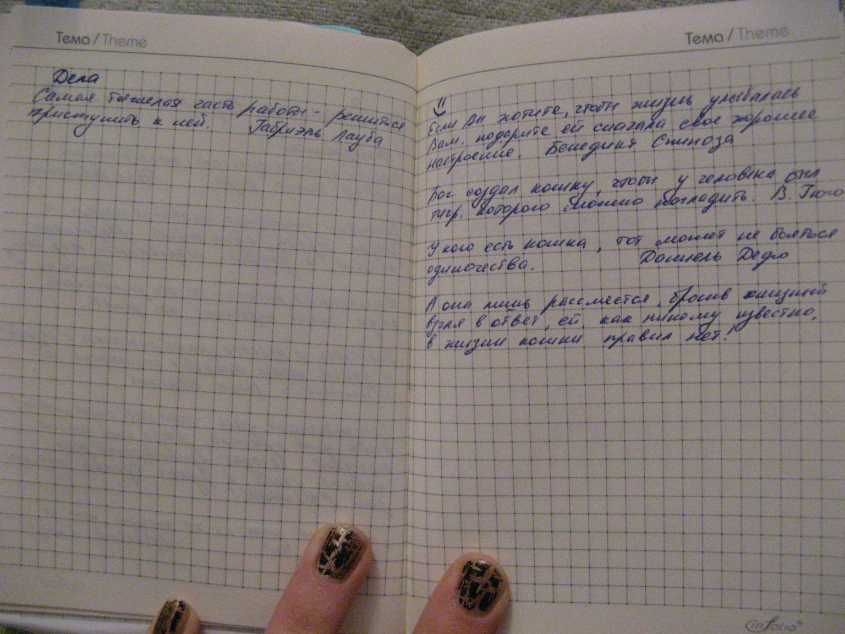 Тема / Theme
Дела
Самая тяжелая часть работы - решиться
приступить к ней. Габриэль Лауба
Тема / Theme
Если Вы хотите, чтобы жизнь улыбалась
Вам, подарите ей сначала свое хорошее
настроение. Бенедикт Спиноза
Бог создал кошку, чтобы у человека был
тигр, которого можно погладить. В. Гюго
У кого есть кошка, тот может не бояться
одиночества. Даниель Дефо
А она лишь рассмеется, бросив хищный
взгляд в ответ, ей, как никому известно,
в жизни кошки правил нет!
infolio